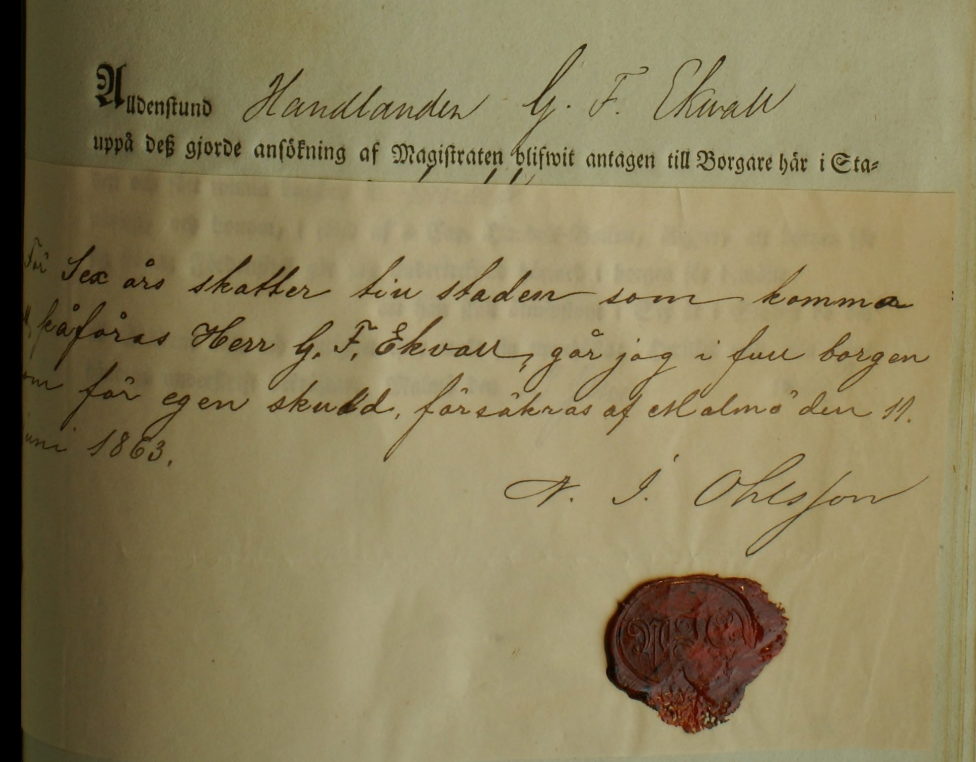 Alldenstund Handlanden G. F. Ekvall
uppå deß gjorde ansökning af Magistraten blifwit antagen till Borgare här i Sta-
För Sex års skatter till staden som komma
påföras Herr G. F. Ekvall, går jag i full borgen
om för egen skuld, försäkras af Malmö den 11.
uni 1863.
N. I. Ohlsson